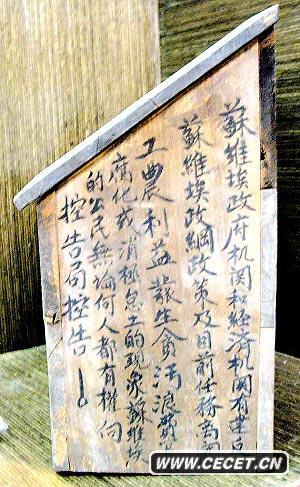 蘇維埃政府机関和經済机関有違
蘇維埃政綱政策及目前任務离開
工農利益發生貪污浪費
腐化或消極怠工的現象蘇維埃
的公民無論何人都有權向
控告局控告
WWW.CECET.CN